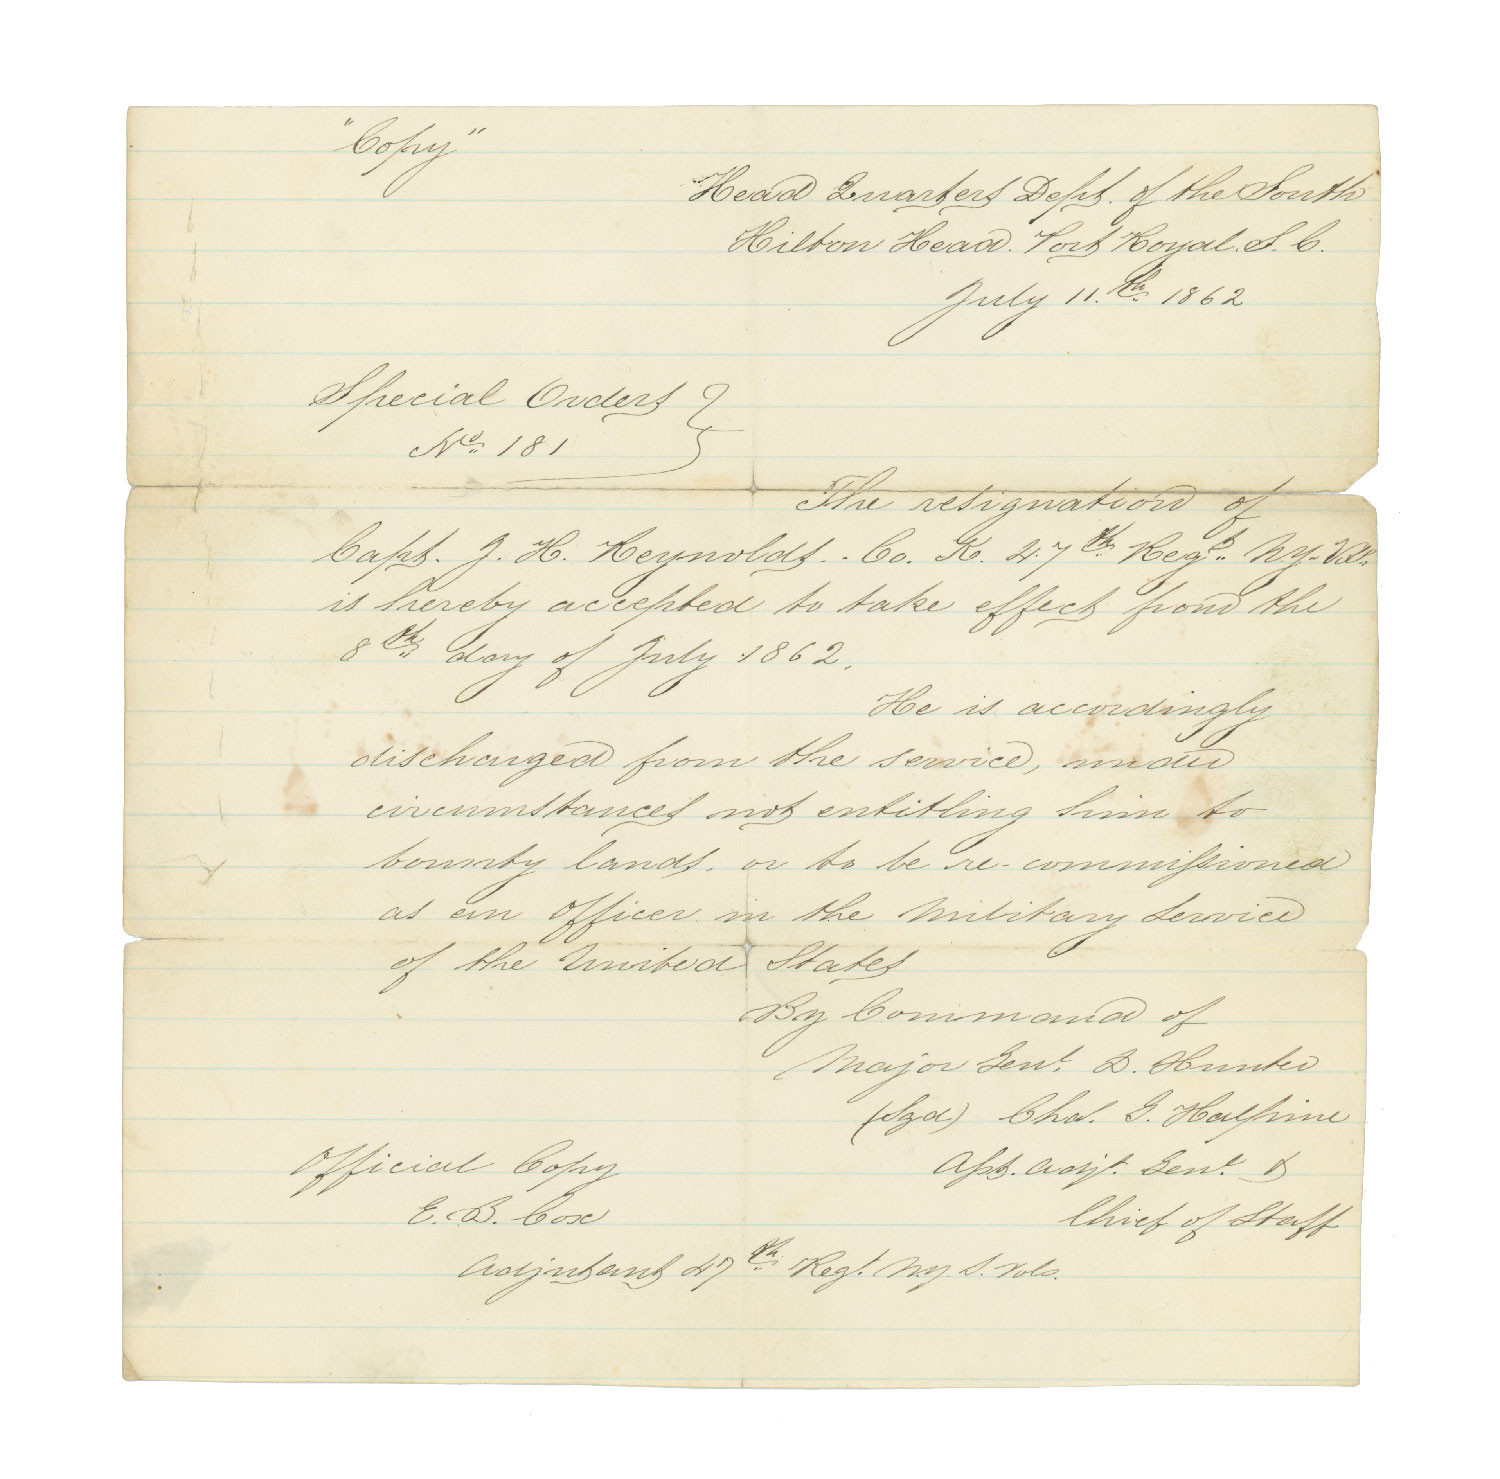 "Copy"
Head Quarters Dept. of the South
Hilton Head. Port Royal. S. C.
July 11.th 1862
Special Orders
No. 181
The resignation of
Capt. J. H. Reynolds. Co. K. 47th Regt. N.Y. Vols.
is hereby accepted to take effect from the
8th day of July 1862.
He is accordingly
discharged from the service, under
circumstances not entitling him to
bounty lands. or to be re-commissioned
as an Officer in the Military Service
of the United States
By Command of
Major Genl. D. Hunter
(Sgd) Chas. G. Halpine
Asst. Adjt. Genl. &
Chief of Staff
Official Copy
E. B. Cox
Adjutant 47th Regt. N.Y. S. Vols.